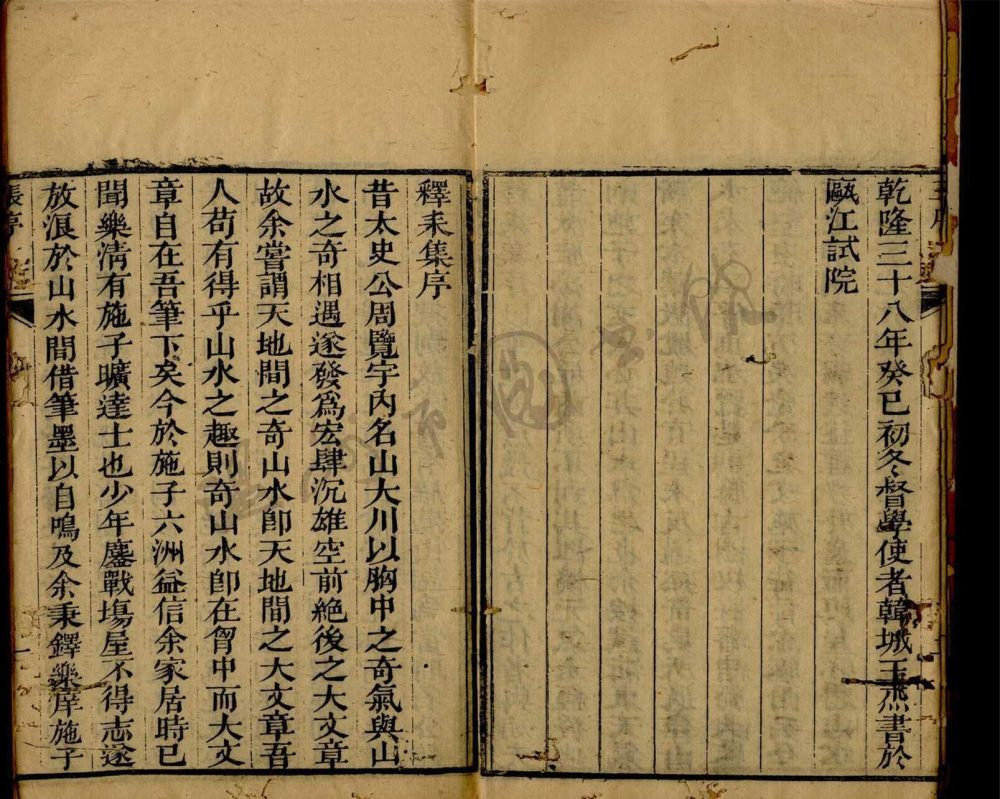 乾隆三十八年癸巳初冬督學使者韓城王燕書於
甌江試院
釋耒集序
昔太史公周覽宇內名山大川以胸中之奇氣與山
水之奇相遇遂發爲宏肆沉雄空前絶後之大文章
故余嘗謂天地間之奇山水卽天地間之大文章吾
人苟有得乎山水之趣則奇山水卽在胷中而大文
章自在吾筆下矣今於施子六洲益信余家居時已
聞樂清有施子曠達士也少年鏖戰塲屋不得志遂
放浪於山水間借筆墨以自鳴及余秉鐸樂庠施子
張序